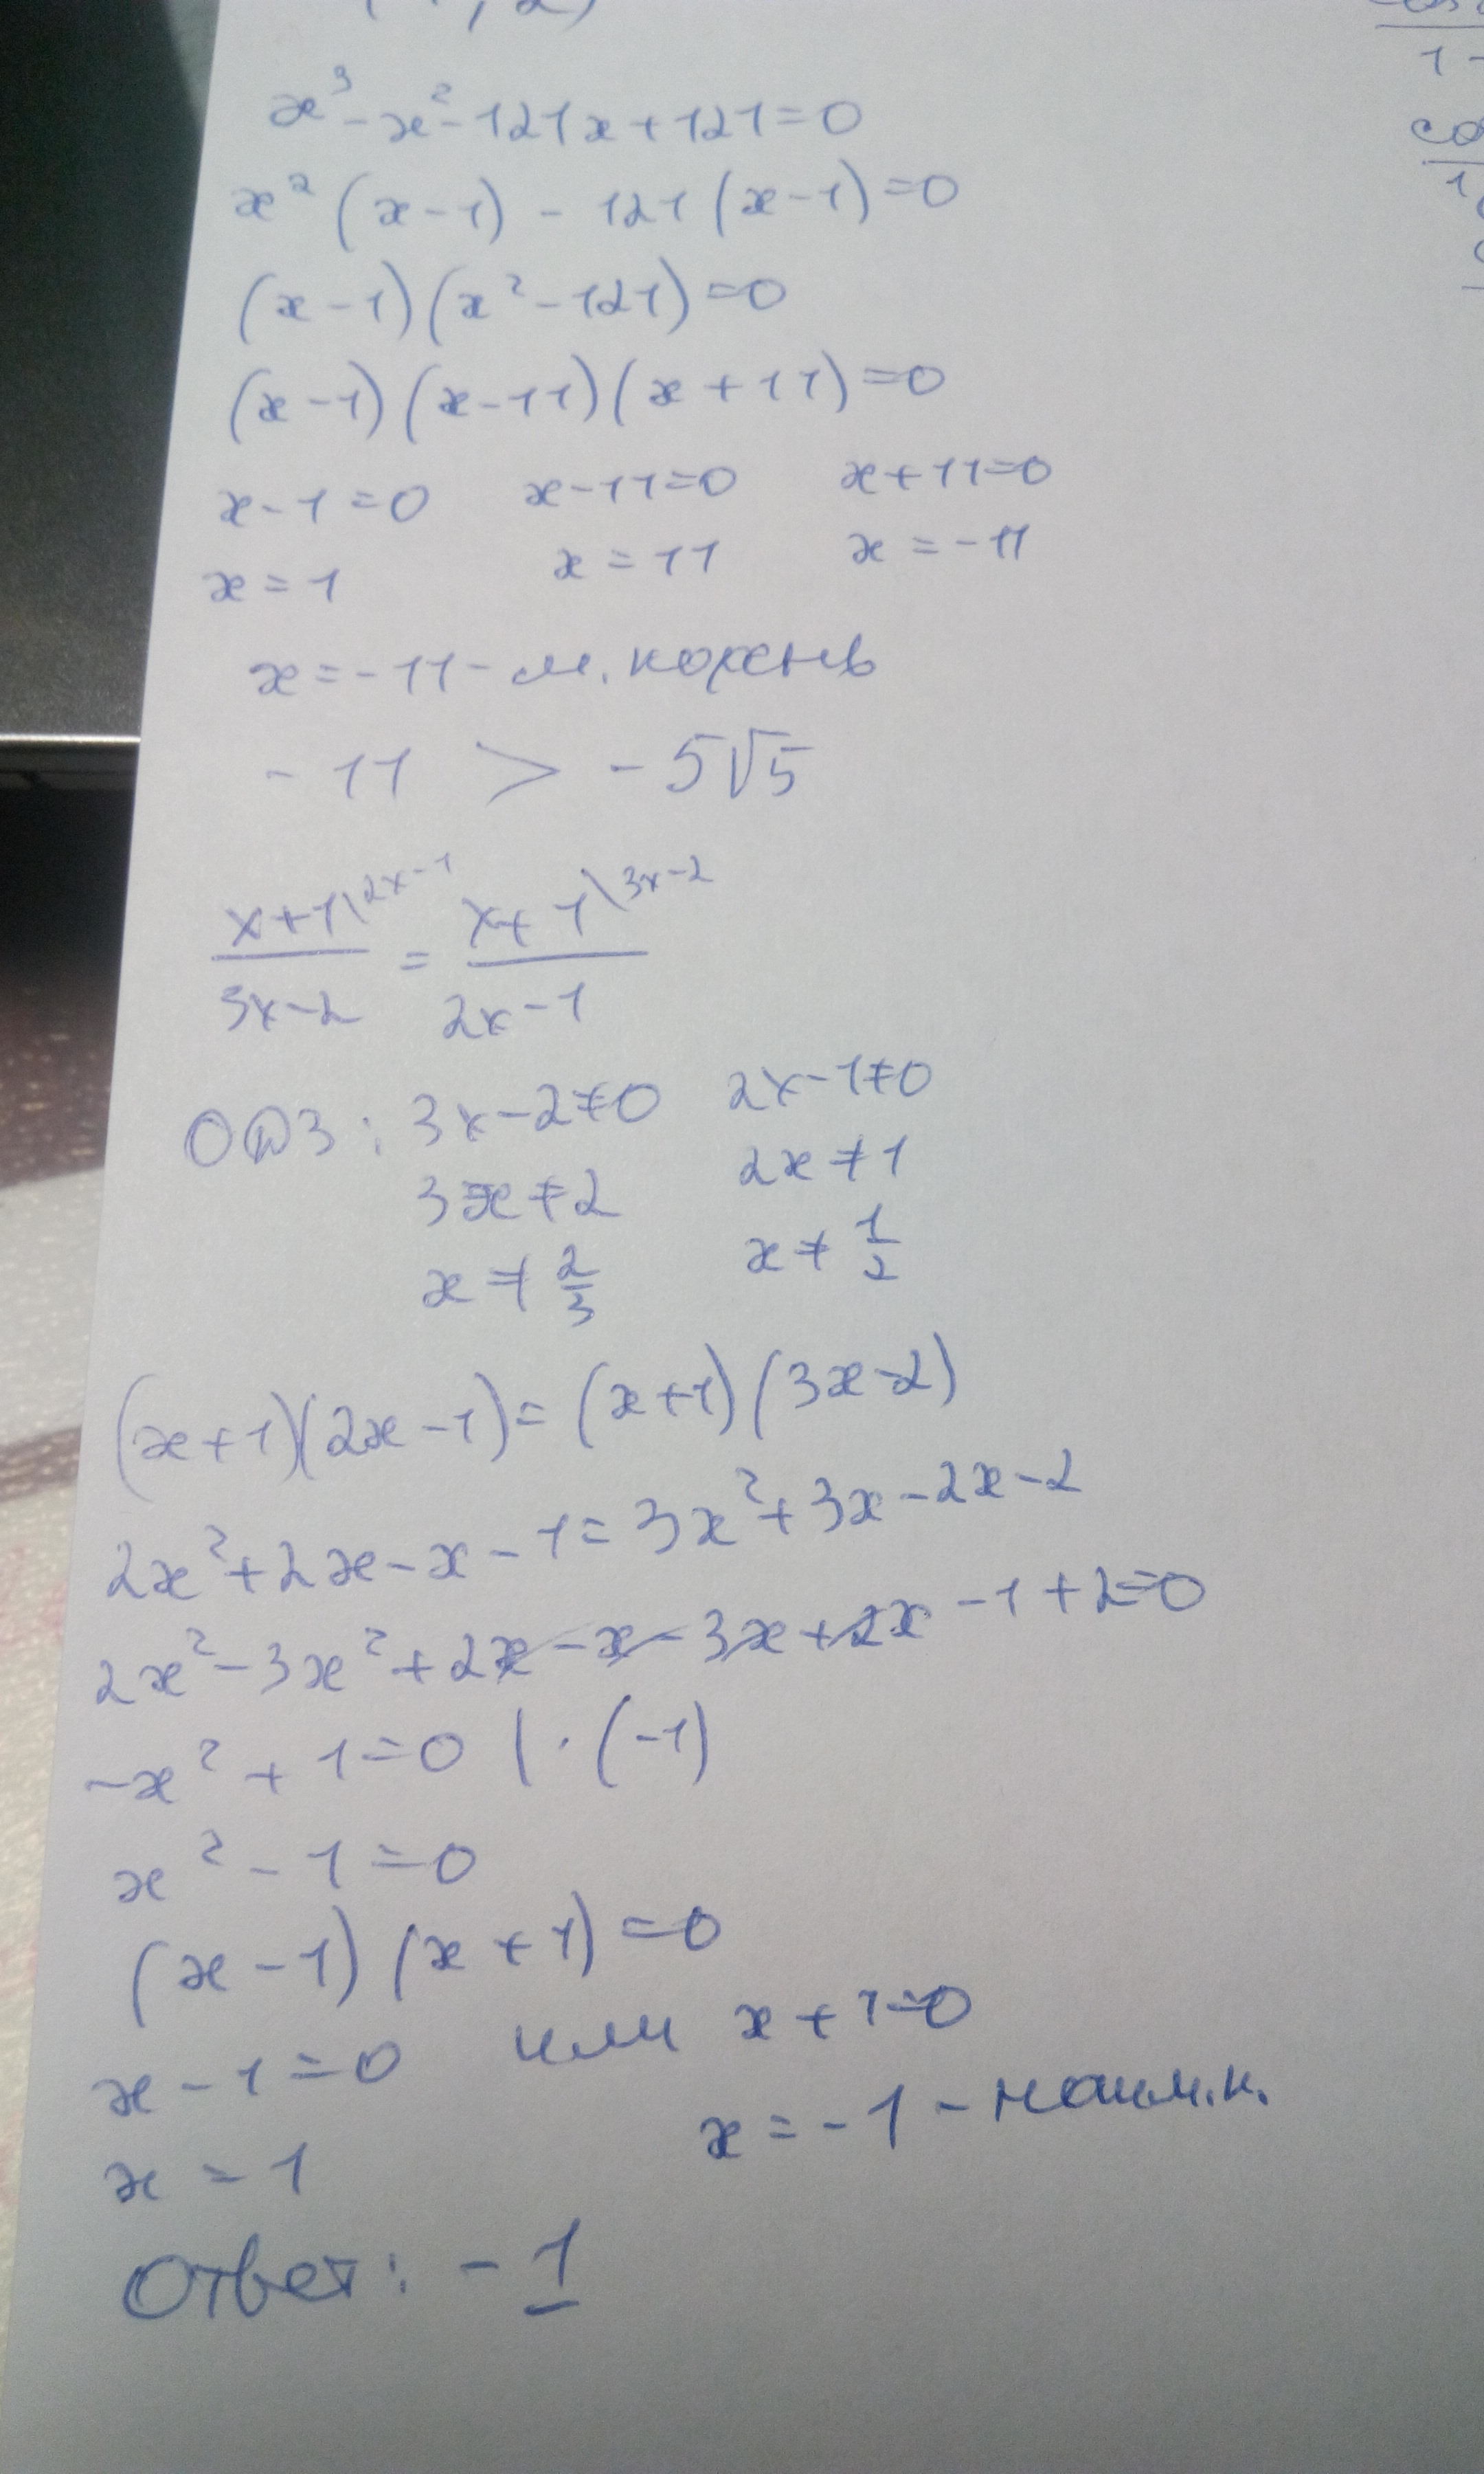 x³ - x² - 121x + 121 = 0
x² (x - 1) - 121 (x - 1) = 0
(x - 1) (x² - 121) = 0
(x - 1) (x - 11) (x + 11) = 0
x - 1 = 0 x - 11 = 0 x + 11 = 0
x = 1 x = 11 x = - 11
x = - 11 - м. корень
- 11 > - 5√5
x+1\2x-1 / 3x-2 = x+1\3x-2 / 2x-1
ОДЗ: 3x - 2 ≠ 0 2x - 1 ≠ 0
3x ≠ 2 2x ≠ 1
x ≠ 2/3 x ≠ 1/2
(x+1)(2x - 1) = (x+1) (3x - 2)
2x² + 2x - x - 1 = 3x² + 3x - 2x - 2
2x² - 3x² + 2x - x - 3x + 2x - 1 + 2 = 0
-x² + 1 = 0 | · (-1)
x² - 1 = 0
(x - 1) (x + 1) = 0
x - 1 = 0 или x + 1 = 0
x = 1 x = - 1 - наим. к.
Ответ: - 1